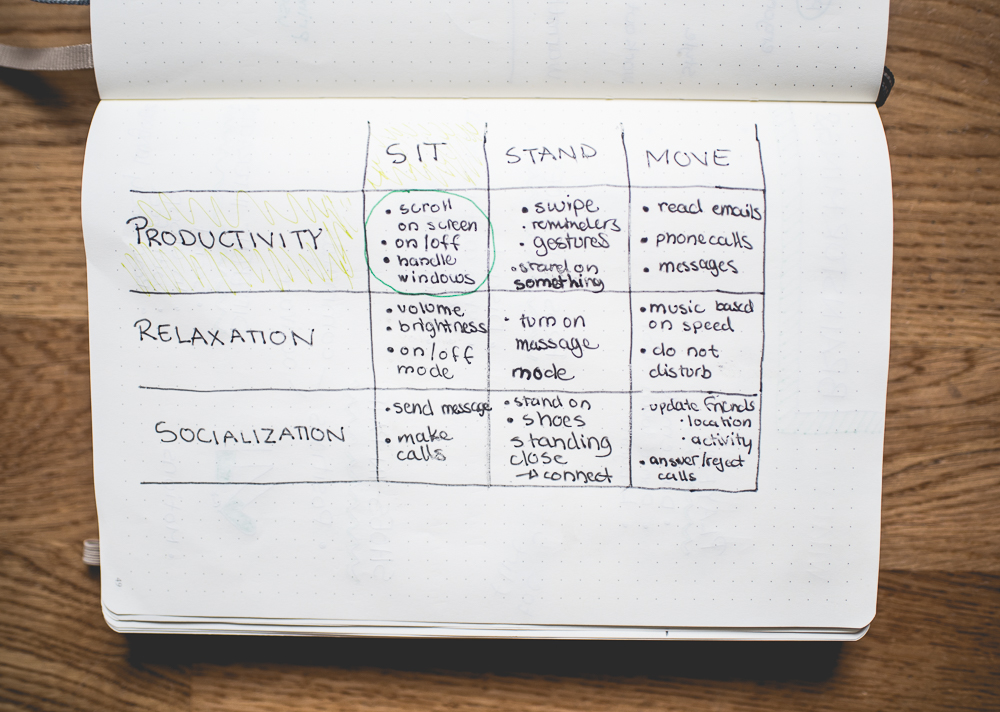 SIT STAND MOVE
PRODUCTIVITY
• scroll
on screen
• on/off
• handle
windows
• swipe
• reminders
• gestures
• stand on
something
• read emails
• phonecalls
• messages
RELAXATION
• volume
• brightness
• on/off
mode
• turn on
massage
mode
• music based
on speed
• do not
disturb
SOCIALIZATION
• send message
• make
calls
• stand on
• shoes
standing
close
→ connect
• update friends
• location
• activity
• answer/reject
calls
49